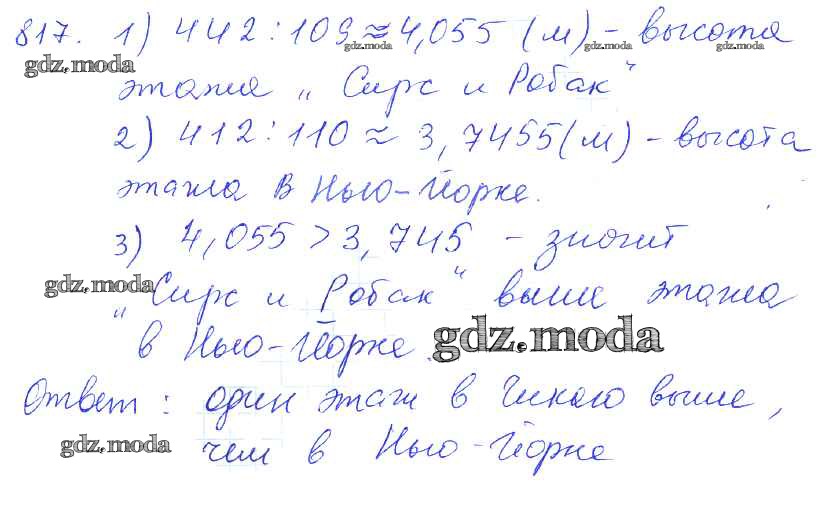 817. 1) 442 : 109 ≈ 4,055 (м) - высота
gdz.moda gdz.moda gdz.moda
gdz.moda
этажа „ Сирс и Робак"
2) 412 : 110 ≈ 3,7455 (м) - высота
этажа в Нью-Йорке.
3) 4,055 > 3,745 - значит
gdz.moda
„ Сирс и Робак" выше этажа
в Нью-Йорке.
gdz.moda
Ответ: один этаж в Чикаго выше,
gdz.moda
чем в Нью-Йорке